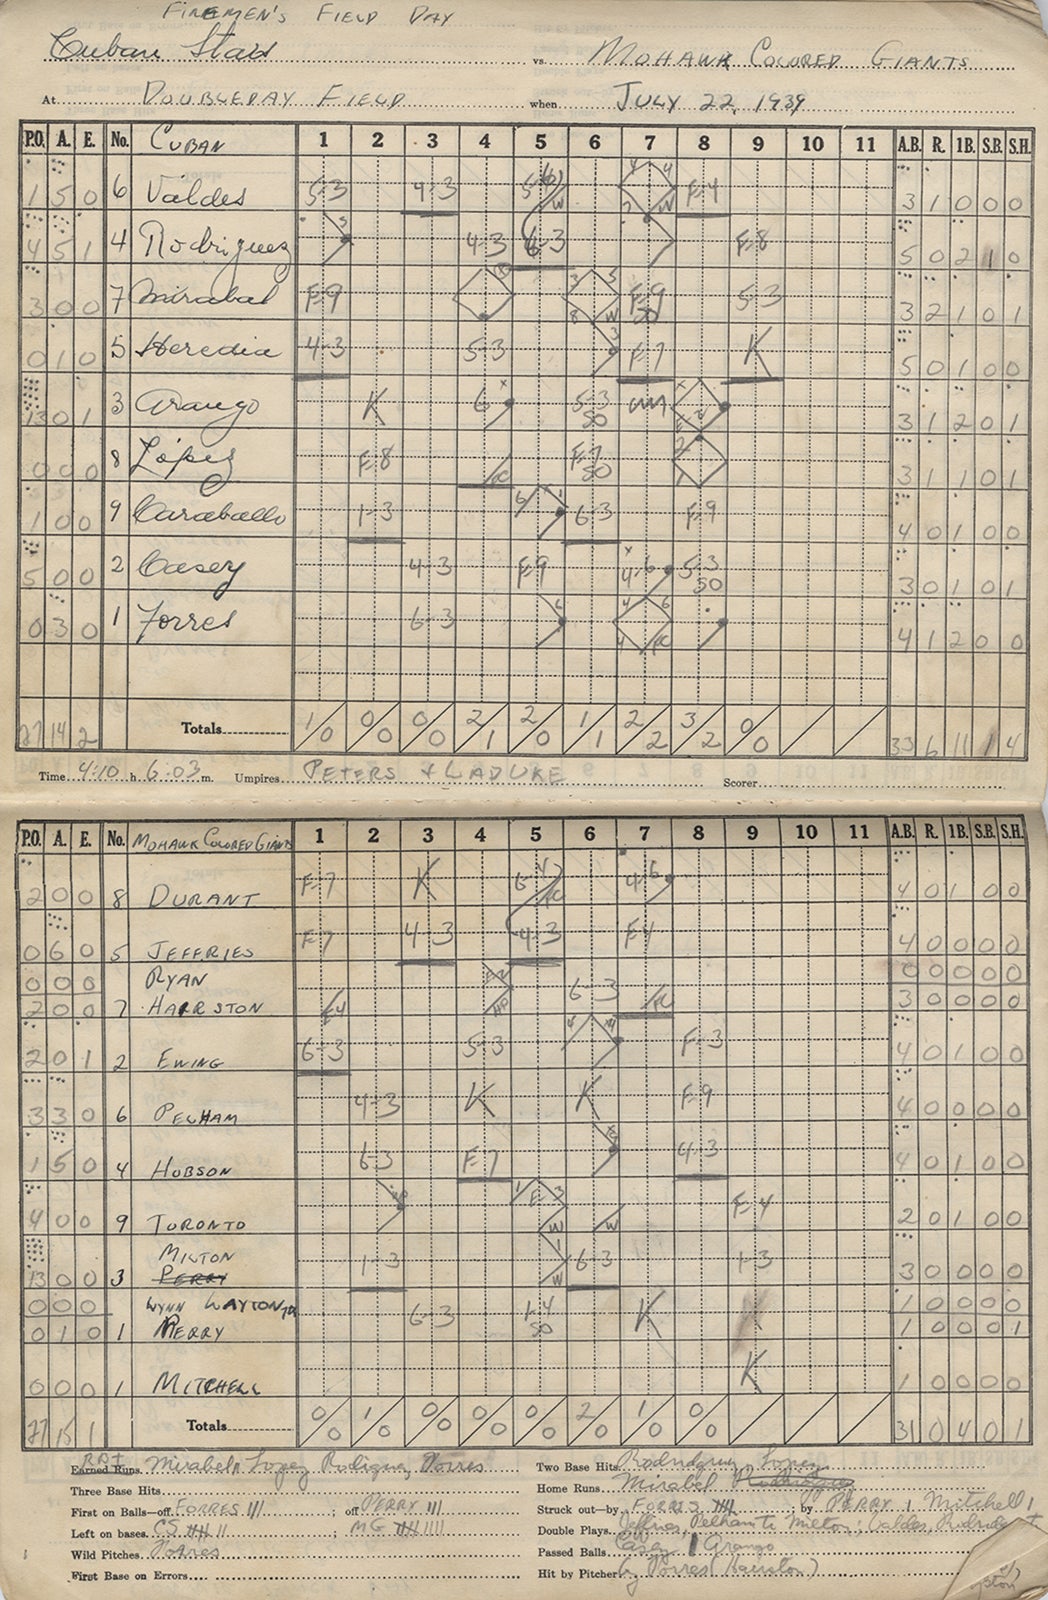 FIREMEN'S FIELD DAY
Cuban Stars vs. MOHAWK COLORED GIANTS
At DOUBLEDAY FIELD when JULY 22, 1939
P.O. A. E. No. CUBAN 1 2 3 4 5 6 7 8 9 10 11 A.B. R. 1B. S.B. S.H.
1 5 0 6 Valdes 5-3 4-3 F-4 3 1 0 0 0
4 5 1 4 Rodriguez 4-3 6-3 F-8 5 0 2 1 0
3 0 0 7 Mirabal F-9 F-9 5-3 3 2 1 0 1
0 1 0 5 Heredia 4-3 5-3 F-7 K 5 0 1 0 0
13 0 1 3 Arango K 6 5-3 SO 3 1 2 0 1
0 0 0 8 Lopez F-8 F-7 SO 3 1 1 0 1
1 0 0 9 Caraballo 1-3 6-3 F-9 4 0 1 0 0
5 0 0 2 Casey 4-3 F-9 4-6 5-3 SO 3 0 1 0 1
0 3 0 1 Torres 6-3 4 1 2 0 0
27 14 2 Totals 1/0 0/0 0/0 2/1 2/0 1/1 2/2 3/2 0/0 33 6 11 1 4
Time 4:10 h. 6:03 m. Umpires PETERS + LADUKE Scorer
P.O. A. E. No. MOHAWK COLORED GIANTS 1 2 3 4 5 6 7 8 9 10 11 A.B. R. 1B. S.B. S.H.
2 0 0 8 DURANT F-7 K 6-4 4-6 4 0 1 0 0
0 6 0 5 JEFFRIES F-7 4-3 4-3 F-4 4 0 0 0 0
0 0 0 RYAN 6-3 0 0 0 0 0
2 0 0 7 HAIRSTON 3 0 0 0 0
2 0 1 2 EWING 6-3 5-3 F-3 4 0 1 0 0
3 3 0 6 PELHAM 4-3 K K F-9 4 0 0 0 0
1 5 0 4 HOBSON 6-3 F-7 4-3 4 0 1 0 0
4 0 0 9 TORONTO W W F-4 2 0 1 0 0
MILTON
13 0 0 3 PERRY 1-3 W 6-3 1-3 3 0 0 0 0
0 0 0 WYNN LAYTON 1 0 0 0 0
0 1 0 1 PERRY 6-3 1-4 SO K 1 0 0 0 1
0 0 0 1 MITCHELL K 1 0 0 0 0
27 15 1 Totals 0/0 1/0 0/0 0/0 0/0 2/0 1/0 0/0 31 0 4 0 1
RBI
Earned Runs Mirabel, Lopez Rodiguez, Torres
Two Base Hits Rodriguez Lopez
Three Base Hits
Home Runs Mirabel Rodriguez
First on Balls—off TORRES III ; off PERRY III
Struck out—by TORRES ; by PERRY 1 Mitchell 1
Left on bases CS MG
Double Plays Jeffries, Pelham to Milton; Valdes,
Wild Pitches Torres
Passed Balls Casey
First Base on Errors
Hit by Pitcher by Torres (Hairston)